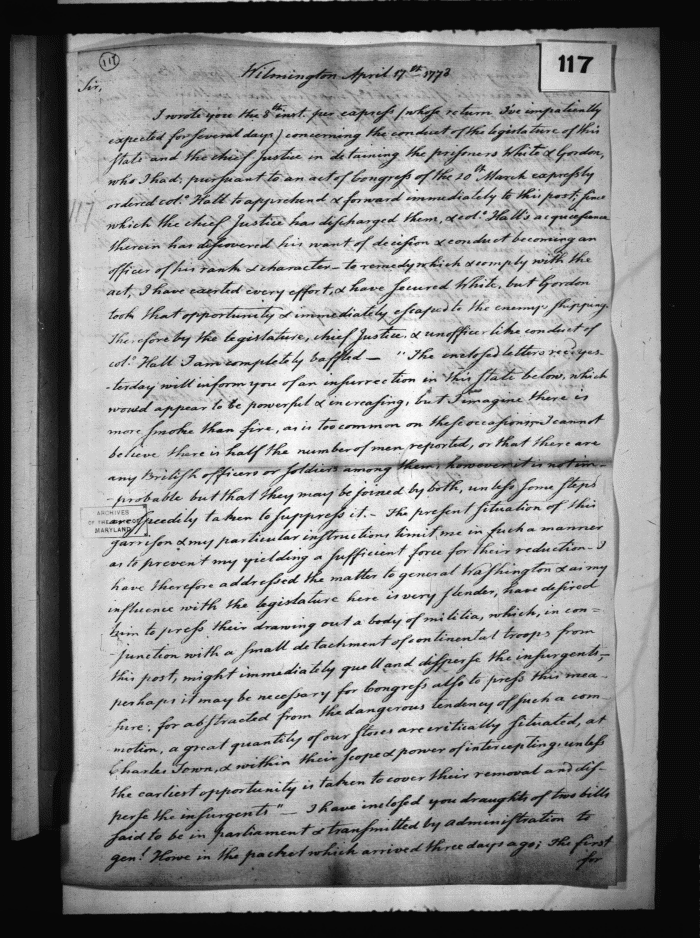 117
117
Wilmington April 17th 1778
Sir,
I wrote you the 8th inst. per express (whose return I've impatiently
expected for several days) concerning the conduct of the legislature of this
State and the chief Justice in detaining the prisoners White & Gordon,
who I had, pursuant to an act of Congress of the 20th March expressly
ordered colo. Hall to apprehend & forward immediately to this post; since
117
which the chief Justice has discharged them, & colo. Hall's acquiescence
therein has discovered his want of decision & conduct becoming an
officer of his rank & character — to remedy which & comply with the
act, I have exerted every effort, & have secured White, but Gordon
took that opportunity & immediately escaped to the enemy's shipping.
Therefore by the legislature, chief Justice, & unofficerlike conduct of
colo. Hall I am completely baffled — "The enclosed letters rec'd yes-
-terday will inform you of an insurrection in this State below, which
would appear to be powerful & increasing, but I imagine there is
more smoke than fire, as is too common on these occasions; I cannot
believe there is half the number of men reported, or that there are
any British officers or soldiers among them; however it is not im-
-probable but that they may be joined by both, unless some steps
are speedily taken to suppress it. - The present situation of this
ARCHIVES
OF THE
MARYLAND
garrison & my particular instructions limit me in such a manner
as to prevent my yielding a sufficient force for their reduction - I
have therefore addressed the matter to general Washington & as my
influence with the legislature here is very slender, have desired
him to press their drawing out a body of militia, which, in con=
-junction with a small detachment of continental troops from
this post, might immediately quell and disperse the insurgents,-
perhaps it may be necessary for Congress also to press this mea-
-sure; for abstracted from the dangerous tendency of such a com-
-motion, a great quantity of our stores are critically situated, at
Charles Town, & within their scope & power of intercepting; unless
the earliest opportunity is taken to cover their removal and dis-
perse the insurgents" — I have inclosed you draughts of two bills
said to be in parliament & transmitted by administration to
genl. Howe in the packet which arrived three days ago; The first
for